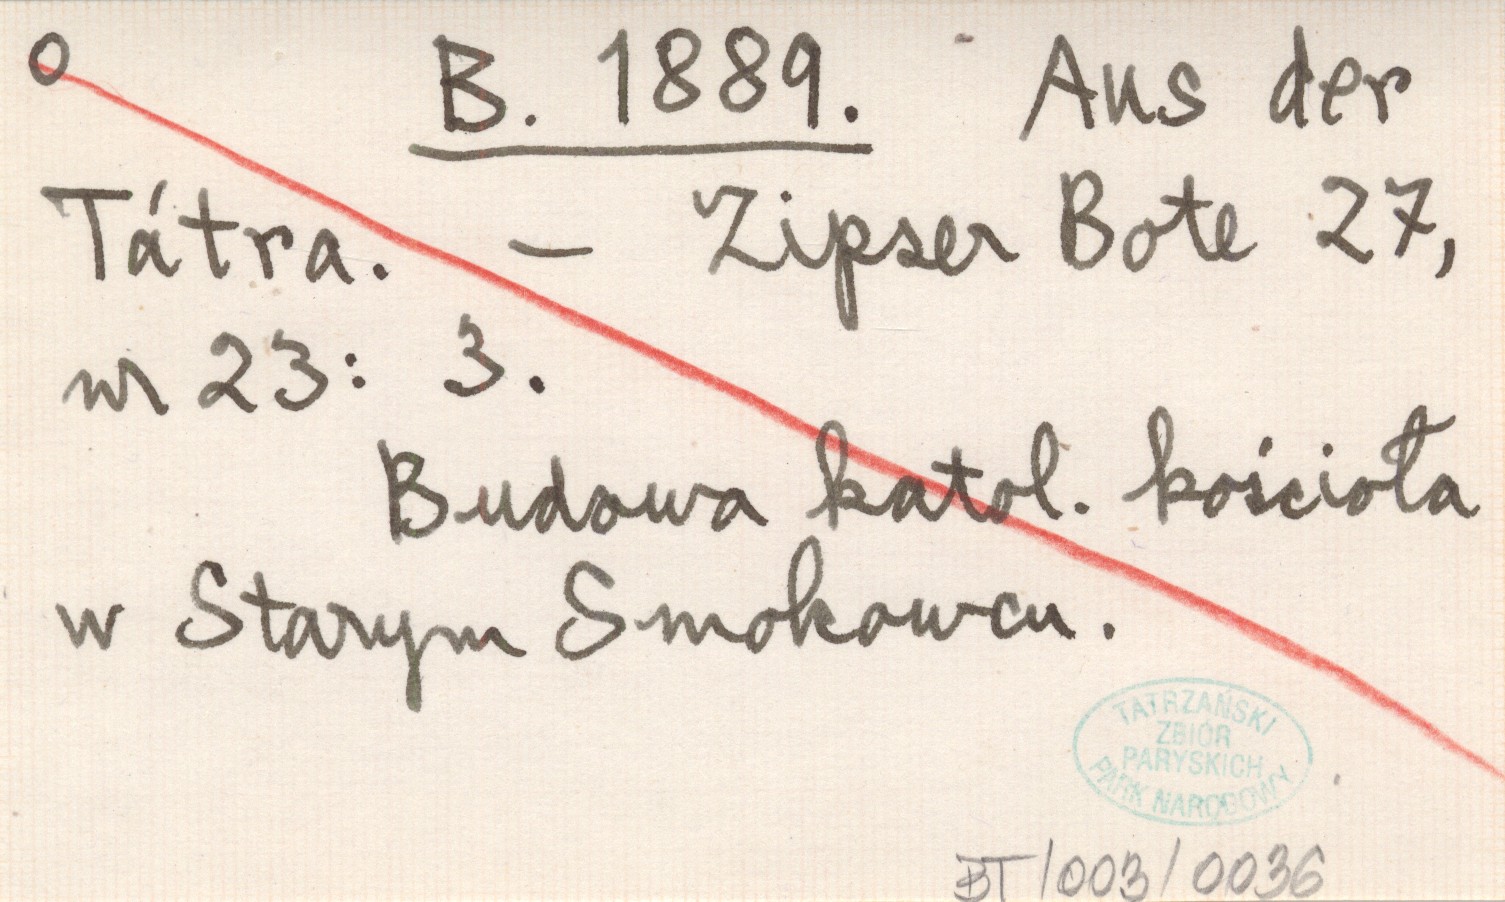 O B. 1889. Aus der
Tátra. – Zipser Bote 27,
nr 23: 3.
Budowa katol. kościoła
w Starym Smokowcu.
TATRZAŃSKI
ZBIÓR
PARYSKICH
PARK NARODOWY
BT/003/0036